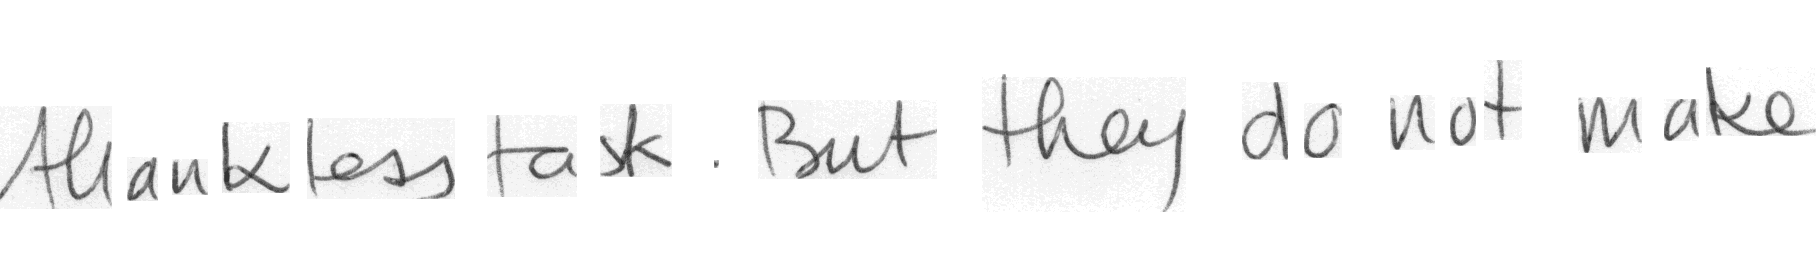 thankless task. But they do not make